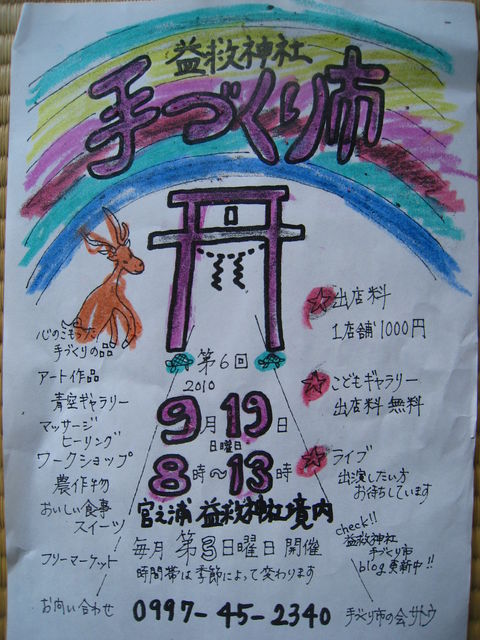 益救神社
手づくり市
心のこもった
手づくりの品
アート作品
青空ギャラリー
マッサージ
ヒーリング
ワークショップ
農作物
おいしい食事
スイーツ
フリーマーケット
お問い合わせ
☆出店料
1店舗1000円
☆こどもギャラリー
出店料 無料
☆ライブ
出演したい方
お待ちしています
第6回
2010
9月19日
日曜日
8時〜13時
宮之浦 益救神社境内
毎月 第3日曜日 開催
時間帯は季節によって変わります
check!!
益救神社
手づくり市
blog更新中!!
0997-45-2340
手づくり市の会サトウ